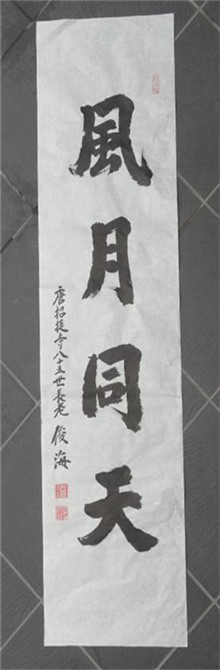 風月同天
唐招提寺八十五世長老 俊海